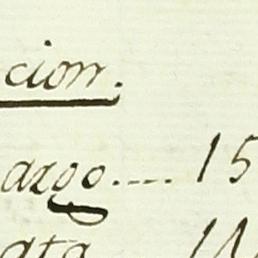 cion.
argo.... 15
ata